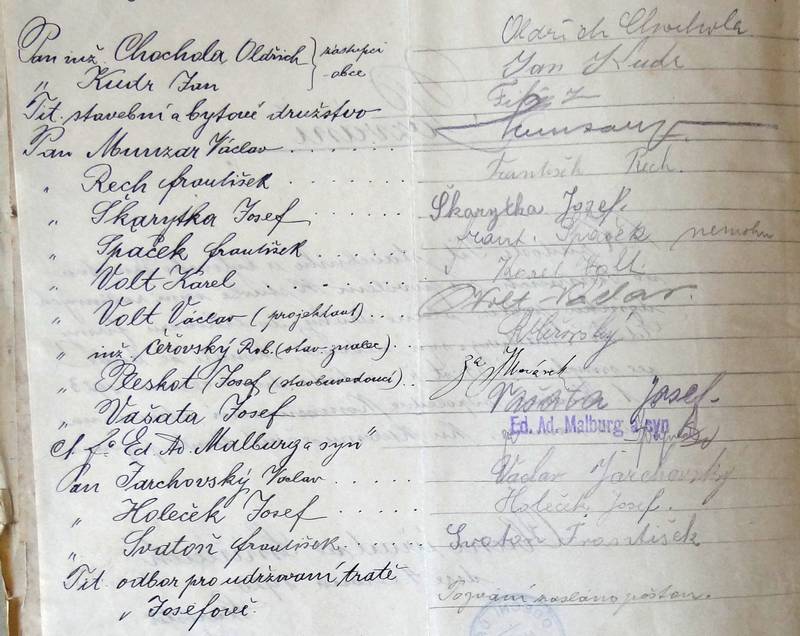 Pan inž. Chochola Oldřich } zástupci Oldřich Chochola
" Kudr Jan } obce Jan Kudr
Tit. stavební a bytové družstvo
Pan Munzar Václav . . . . . . . Munzar
" Rech František . . . . . . František Rech.
" Škarytka Josef . . . . . . Škarytka Josef.
" Špaček František . . . . . Frant. Špaček nemohu
" Volt Karel . . . . . . Karel Volt
" Volt Václav (projektant) . . Volt Václav.
" inž. Čeřovský Rob. (stav. znalec) . R. Čeřovský
" Pleskot Josef (stavbuvedoucí) . . za Morávek
" Vašata Josef . . . . . Vašata Josef.
Ct. fa Ed. Ad. Malburg a syn" Ed. Ad. Malburg a syn
Pan Jarchovský Václav . . . . . Václav Jarchovský
" Holeček Josef . . . . . Holeček Josef.
" Svatoň František . . . . . Svatoň František
Tit. odbor pro udržování tratě
v Josefově. Pozvání zasláno poštou.